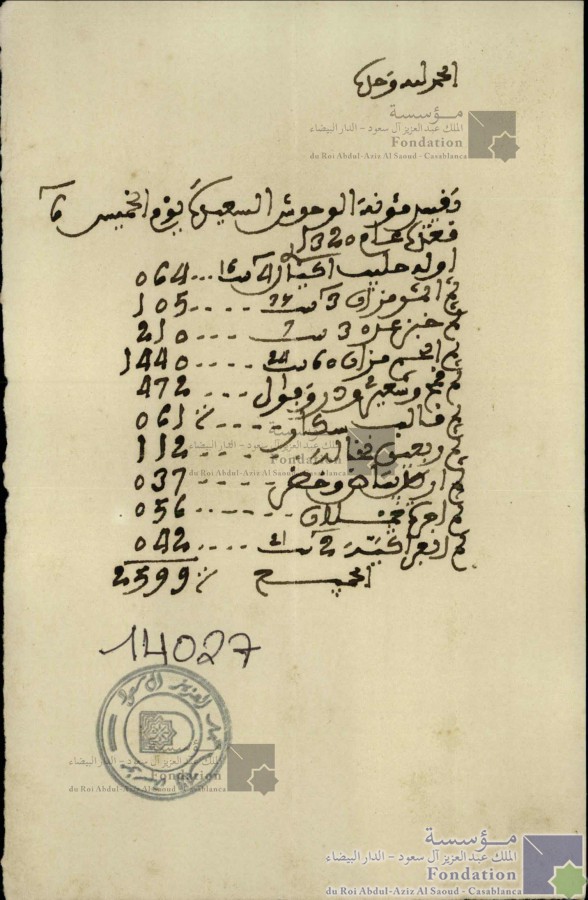 الحمد لله وحده
مؤسسة
الملك عبد العزيز آل سعود - الدار البيضاء
Fondation
du Roi Abdul-Aziz Al Saoud - Casablanca
تقييد مئونة الوحوش السعيدة يوم الخميس 6
قعدة عام 1320
اوله حليب اكيال 4 064
ثم الشو ميزان 3 105
ثم خبز عدد 3 210
ثم الحم ميزان 60 1440
ثم قمح وشعير وذرة وبول 472
ثم قالب سكار 061
ثم 112
مؤسسة
الملك عبد العزيز آل سعود - الدار البيضاء
Fondation
du Roi Abdul-Aziz Al Saoud - Casablanca
ثم وخضر 037
ثم اجرة 056
ثم 2 042
الجميع 2599
14027
عبد العزيز آل سعود
مؤسسة
الملك عبد العزيز آل سعود - الدار البيضاء
Fondation
du Roi Abdul-Aziz Al Saoud - Casablanca
مؤسسة
الملك عبد العزيز آل سعود - الدار البيضاء
Fondation
du Roi Abdul-Aziz Al Saoud - Casablanca